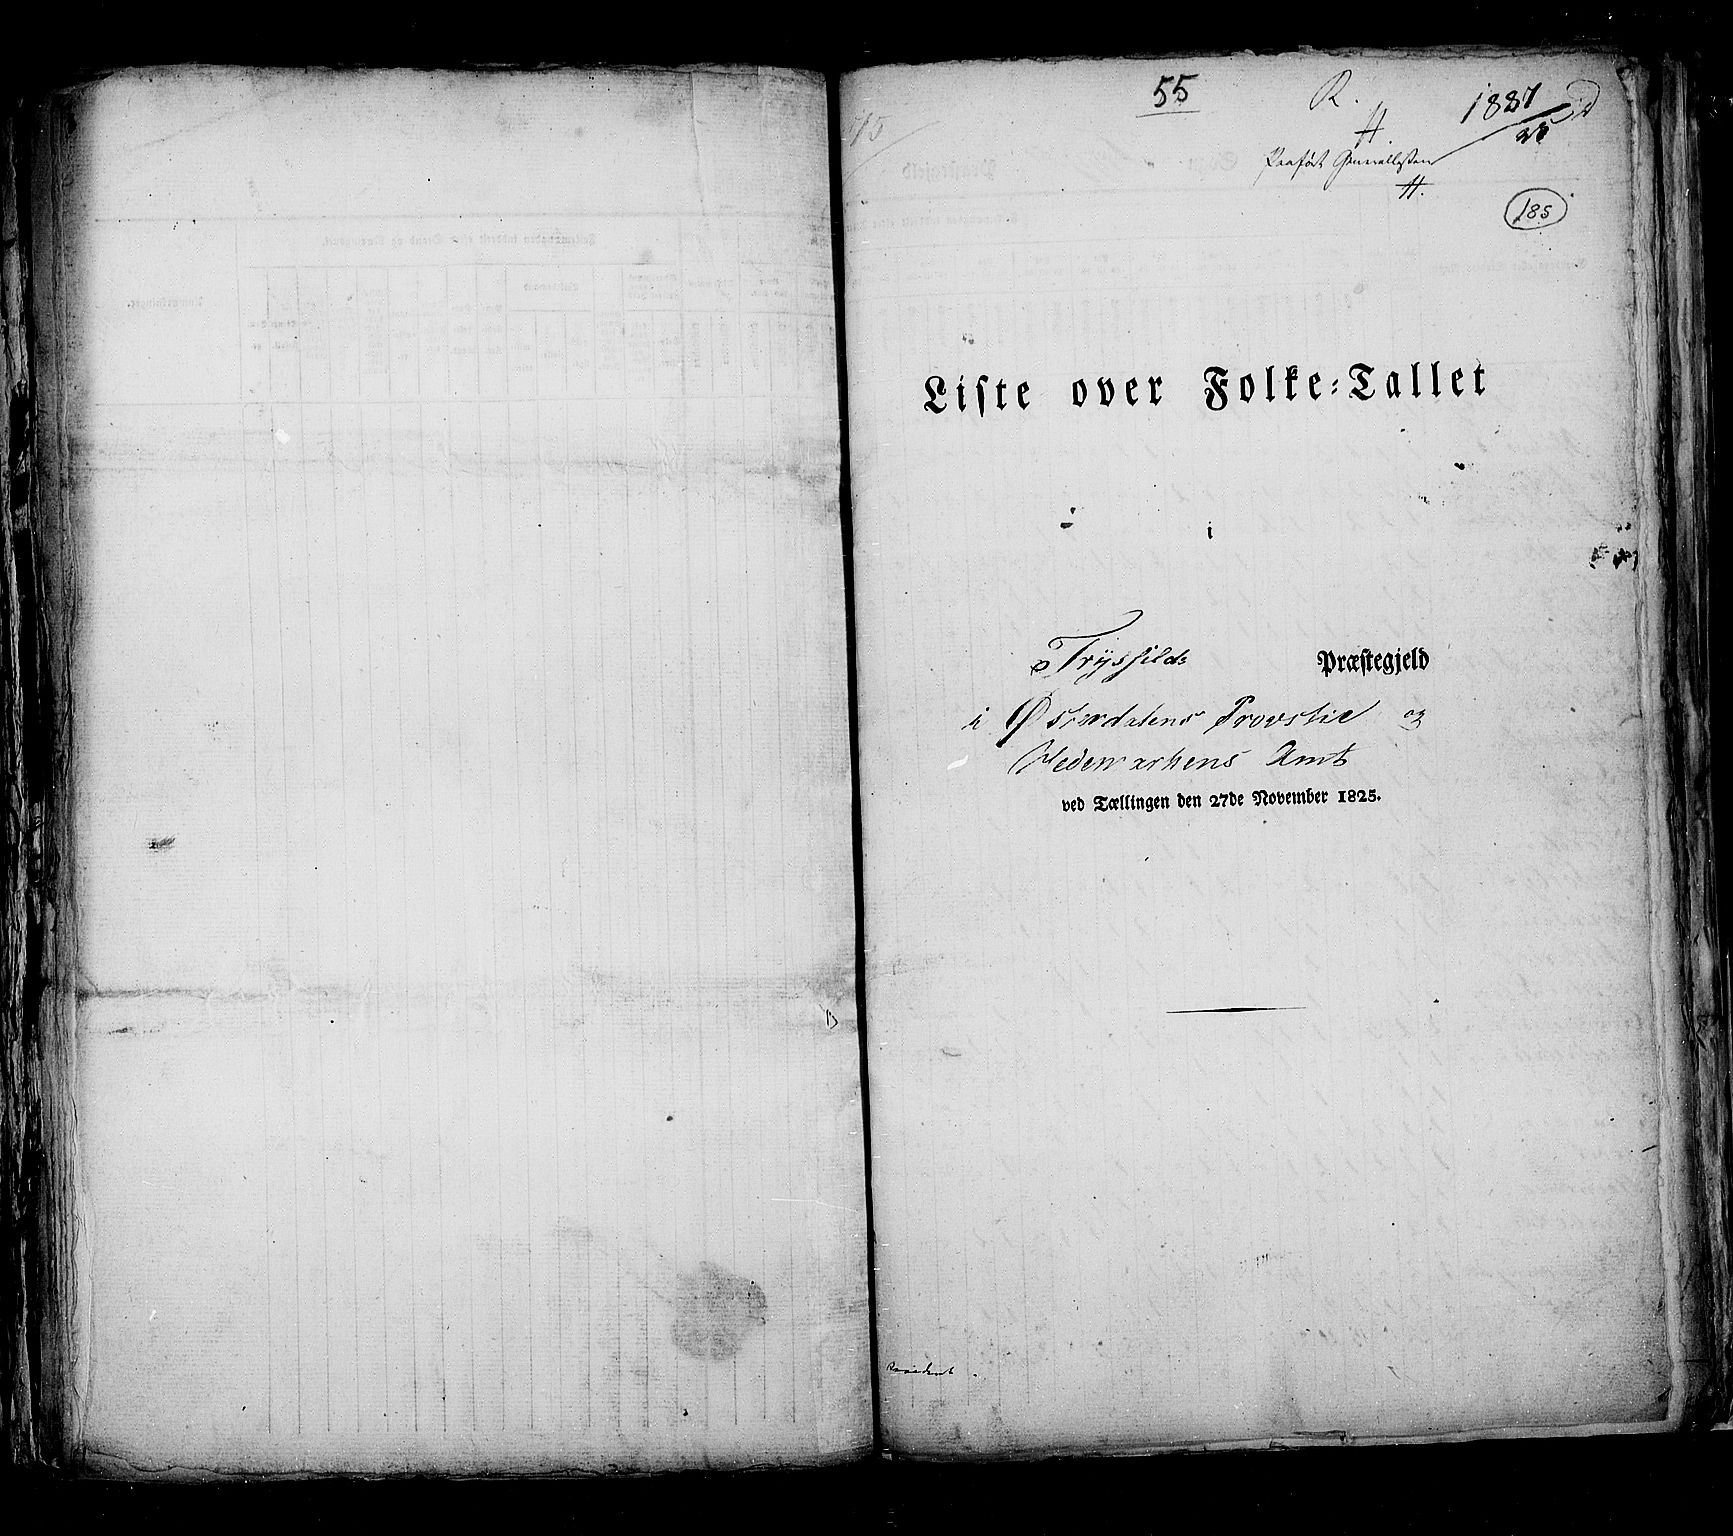 55
R.
1887
26
H.
Paaført Generallisten
H.
185
Liste over Folke-Tallet
i
Trysfilds Præstegjeld
i Østerdalens Provstie og
Hedemarkens Amt
ved Tællingen den 27de November 1825.
Revideret.